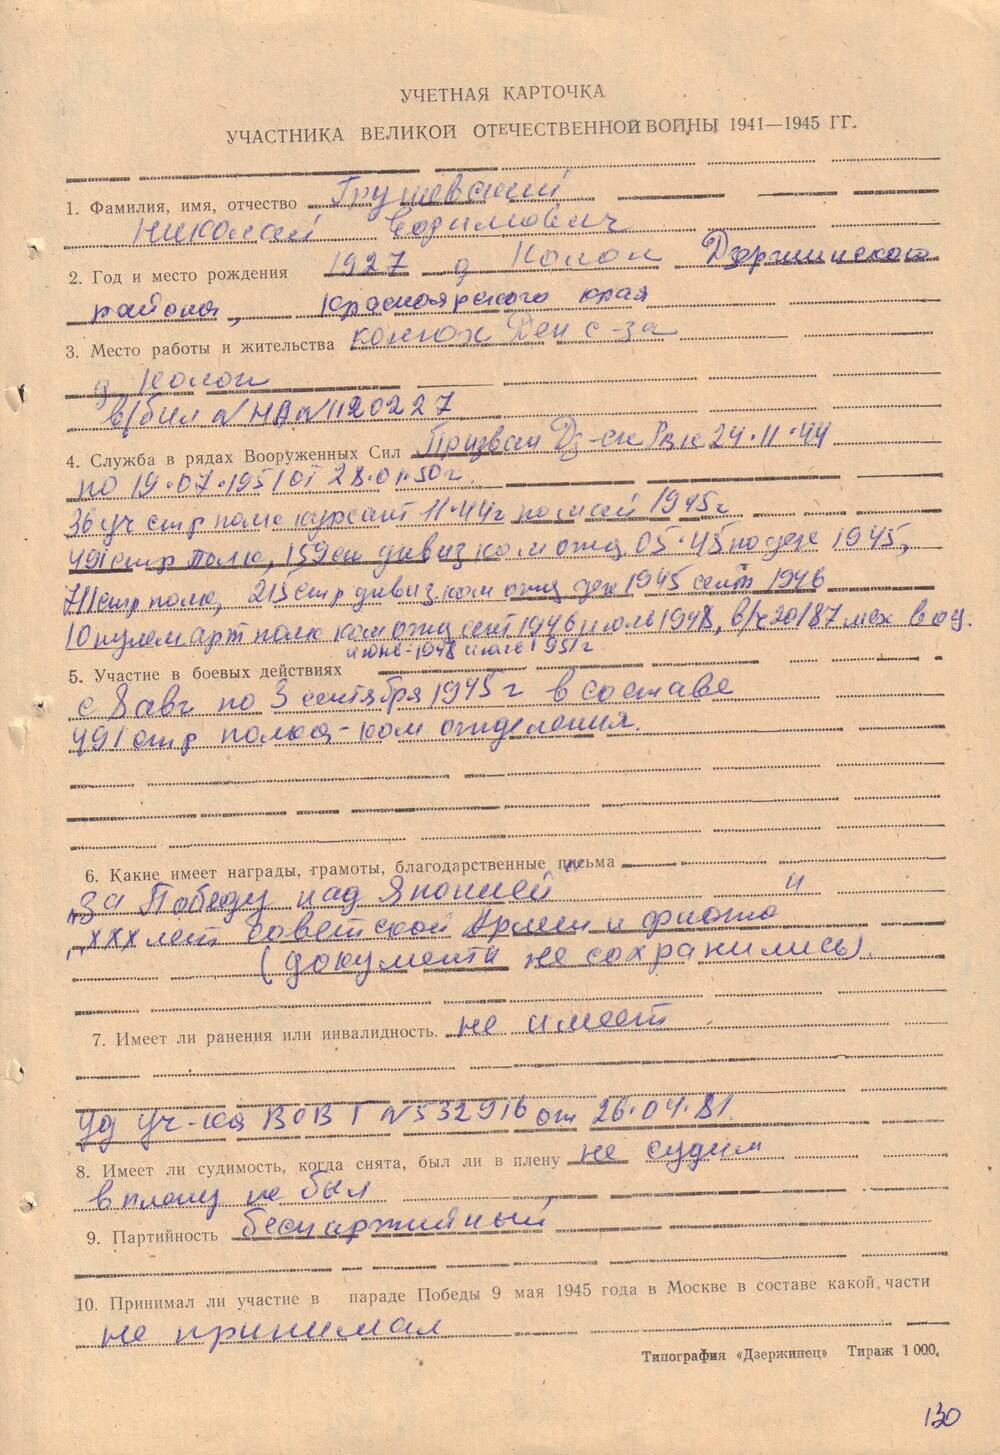 УЧЕТНАЯ КАРТОЧКА
УЧАСТНИКА ВЕЛИКОЙ ОТЕЧЕСТВЕННОЙ ВОЙНЫ 1941—1945 ГГ.
1. Фамилия, имя, отчество Грушевский
Николай
2. Год и место рождения 1927 д Колон Дзержинского
района, Красноярского края
3. Место работы и жительства колхоз Ден с-за
д Колон
в/бил № НА № 1120227
4. Служба в рядах Вооруженных Сил Призван Дз-ск Рвк 24.11.44
по 19.07.1951 от 28.01.50г.
36 уч стр полк курсант 11.44г по май 1945г
491 стр полк, 159 ск дивиз ком отд 05.45 по дек 1945,
711 стр полк, 215 стр дивиз ком отд дек 1945 сент 1946
10 пулем арт полк ком отд сент 1946 июль 1948, в/ч 20187 мех вод.
июнь-1948 июль 1951г
5. Участие в боевых действиях
с 8 авг по 3 сентября 1945г в составе
491 стр полка - ком отделения.
6. Какие имеет награды, грамоты, благодарственные письма
„За Победу над Японией"
„ХХХ лет советской Армии и флота"
(документы не сохранились).
7. Имеет ли ранения или инвалидность. не имеет
Уд уч-ка ВОВ Г №532916 от 26.04.81.
8. Имеет ли судимость, когда снята, был ли в плену не судим
в плену не был
9. Партийность беспартийный
10. Принимал ли участие в параде Победы 9 мая 1945 года в Москве в составе какой части
не принимал
Типография «Дзержинец» Тираж 1 000.
130